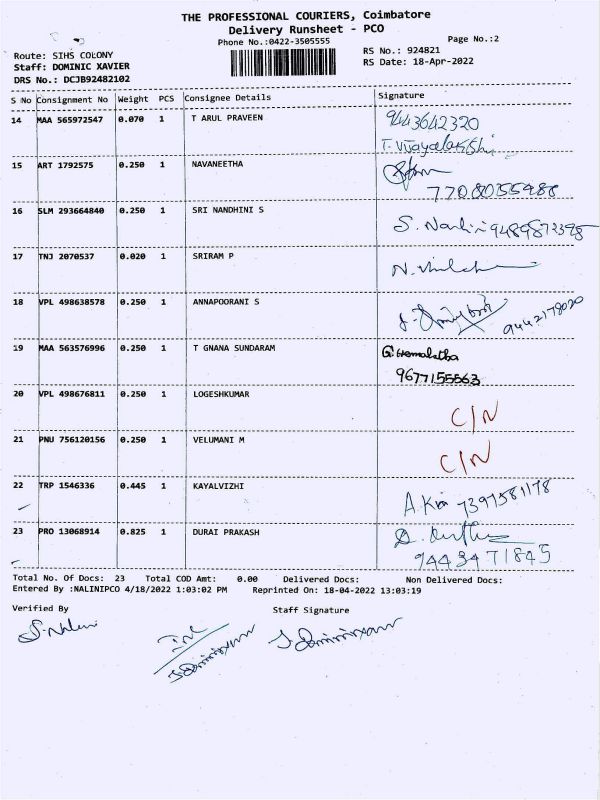 THE PROFESSIONAL COURIERS, Coimbatore
Delivery Runsheet - PCO
Phone No.:0422-3505555 Page No.:2
Route: SIHS COLONY RS No.: 924821
Staff: DOMINIC XAVIER RS Date: 18-Apr-2022
DRS No.: DCJB92482102
S No Consignment No Weight PCS Consignee Details Signature
14 MAA 565972547 0.070 1 T ARUL PRAVEEN 9443642320
T. Vijayalakshi
15 ART 1792575 0.250 1 NAVANEETHA
7708055988
16 SLM 293664840 0.250 1 SRI NANDHINI S S. Nandini 9489873398
17 TNJ 2070537 0.020 1 SRIRAM P
18 VPL 498638578 0.250 1 ANNAPOORANI S 9442178020
19 MAA 563576996 0.250 1 T GNANA SUNDARAM G. Hemalatha
9677155563
20 VPL 498676811 0.250 1 LOGESHKUMAR C/N
21 PNU 756120156 0.250 1 VELUMANI M C/N
22 TRP 1546336 0.445 1 KAYALVIZHI 7397581178
23 PRO 13068914 0.825 1 DURAI PRAKASH
9443471845
Total No. Of Docs: 23 Total COD Amt: 0.00 Delivered Docs: Non Delivered Docs:
Entered By :NALINIPCO 4/18/2022 1:03:02 PM Reprinted On: 18-04-2022 13:03:19
Verified By Staff Signature